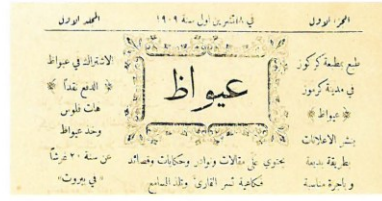 الجزء الاول
في ١٨ تشرين اول سنة ١٩٠٩
المجلد الاول
طبع بمطبعة كركوز
في مدينة كرموز
عيواظ
ينشر الاعلانات
بطريقة بديعة
وباجرة مناسبة
عيواظ
يحتوي على مقالات ونوادر وحكايات وقصائد
فكاهية تسر القارئ وتلذ السامع
الاشتراك في عيواظ
الدفع نقداً
هات فلوس
وخد عيواظ
عن سنة ٢٠ غرشاً
في بيروت